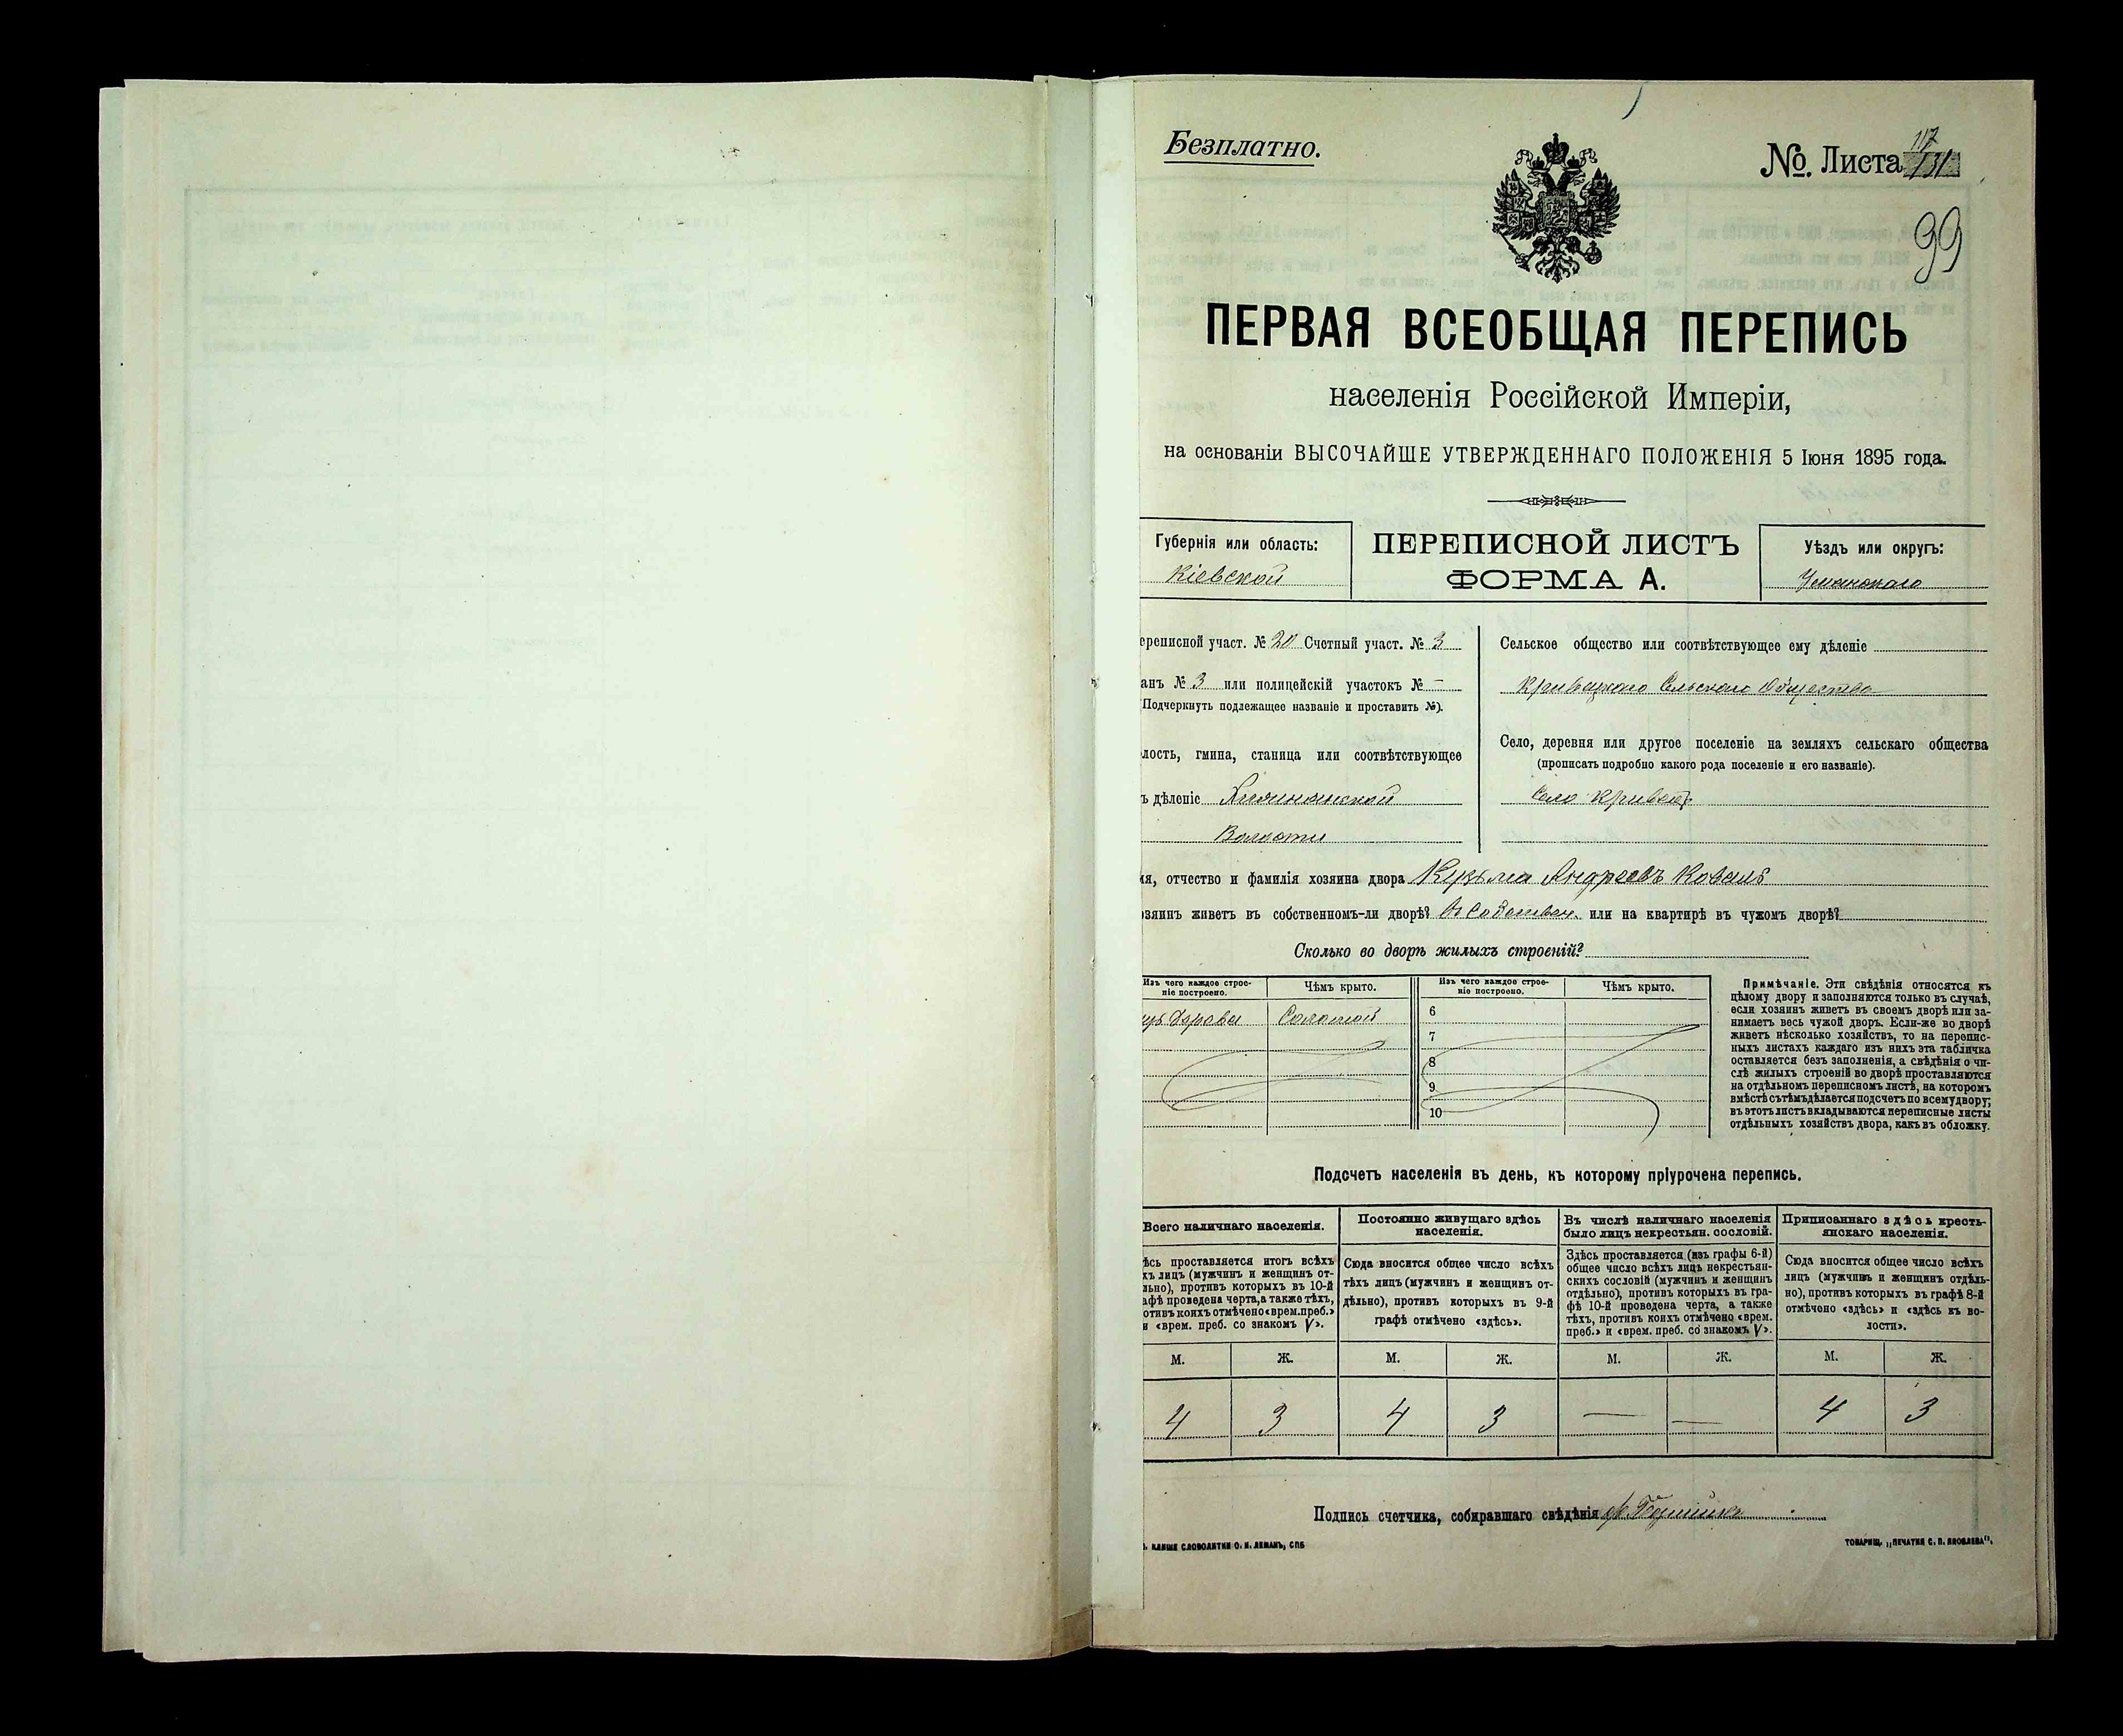 Безплатно.
№. Листа 117
99
ПЕРВАЯ ВСЕОБЩАЯ ПЕРЕПИСЬ
населенія Россійской Имперіи,
на основаніи ВЫСОЧАЙШЕ УТВЕРЖДЕННАГО ПОЛОЖЕНІЯ 5 Іюня 1895 года.
Губернія или область:
Кіевской
ПЕРЕПИСНОЙ ЛИСТЪ
ФОРМА А.
Уѣздъ или округъ:
Уманскаго
ереписной участ. № 20 Счетный участ. № 3
анъ № 3 или полицейскій участокъ № —
Подчеркнуть подлежащее названіе и проставить №).
лость, гмина, станица или соотвѣтствующее
ъ дѣленіе
Волости
Сельское общество или соотвѣтствующее ему дѣленіе
Кривецкаго Сельскаго Общества
Село, деревня или другое поселеніе на земляхъ сельскаго общества
(прописать подробно какого рода поселеніе и его названіе).
Село Кривецъ
ія, отчество и фамилія хозяина двора Кузьма Андреевъ Коваль
озяинъ живетъ въ собственномъ-ли дворѣ? Въ Собствен. или на квартирѣ въ чужомъ дворѣ?
Сколько во дворѣ жилыхъ строеній?
Изъ чего каждое строе-
ніе построено.
Чѣмъ крыто.
Изъ чего каждое строе-
ніе построено.
Чѣмъ крыто.
изъ дерева Соломой
6
7
8
9
10
Примѣчаніе. Эти свѣдѣнія относятся къ
цѣлому двору и заполняются только въ случаѣ,
если хозяинъ живетъ въ своемъ дворѣ или за-
нимаетъ весь чужой дворъ. Если-же во дворѣ
живетъ нѣсколько хозяйствъ, то на перепис-
ныхъ листахъ каждаго изъ нихъ эта табличка
оставляется безъ заполненія, а свѣдѣнія о чи-
слѣ жилыхъ строеній во дворѣ проставляются
на отдѣльномъ переписномъ листѣ, на которомъ
вмѣстѣ съ тѣмъ дѣлается подсчетъ по всему двору;
въ этотъ листъ вкладываются переписные листы
отдѣльныхъ хозяйствъ двора, какъ въ обложку.
Подсчетъ населенія въ день, къ которому пріурочена перепись.
Всего наличнаго населенія.
Постоянно живущаго здѣсь
населенія.
Въ числѣ наличнаго населенія
было лицъ некрестьян. сословій.
Приписаннаго здѣсь кресть-
янскаго населенія.
ѣсь проставляется итогъ всѣхъ
хъ лицъ (мужчинъ и женщинъ от-
льно), противъ которыхъ въ 10-й
афѣ проведена черта, а также тѣхъ,
отивъ коихъ отмѣчено «врем. преб.»
и «врем. преб. со знакомъ V».
Сюда вносится общее число всѣхъ
тѣхъ лицъ (мужчинъ и женщинъ от-
дѣльно), противъ которыхъ въ 9-й
графѣ отмѣчено «здѣсь».
Здѣсь проставляется (изъ графы 6-й)
общее число всѣхъ лицъ некрестьян-
скихъ сословій (мужчинъ и женщинъ
отдѣльно), противъ которыхъ въ гра-
фѣ 10-й проведена черта, а также
тѣхъ, противъ коихъ отмѣчено «врем.
преб.» и «врем. преб. со знакомъ V».
Сюда вносится общее число всѣхъ
лицъ (мужчинъ и женщинъ отдѣль-
но), противъ которыхъ въ графѣ 8-й
отмѣчено «здѣсь» и «здѣсь къ во-
лости».
М. Ж. М. Ж. М. Ж. М. Ж.
4 3 4 3 — — 4 3
Подпись счетчика, собиравшаго свѣдѣнія
. КЛИШЕ СЛОВОЛИТНИ О. И. ЛЕМАНЪ, СПБ
ТОВАРИЩ. „ПЕЧАТНЯ С. П. ЯКОВЛЕВА".